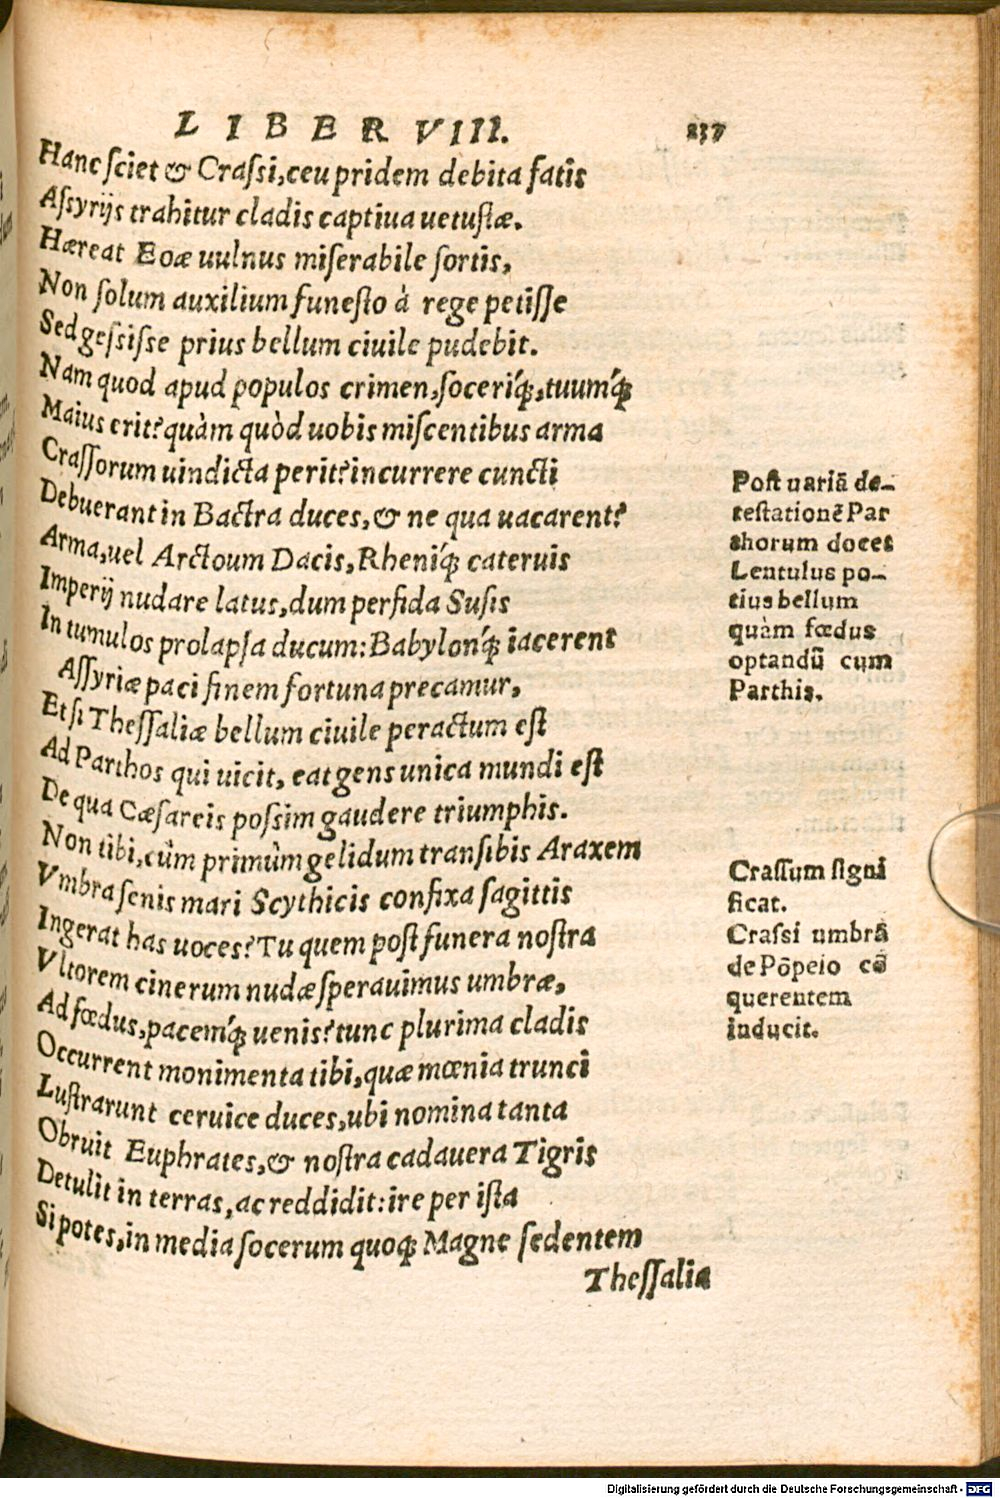 LIBER VIII. 237
Hanc sciet & Crassi, ceu pridem debita fatis
Assyrijs trahitur cladis captiua uetustæ.
Hæreat Eoæ uulnus miserabile sortis,
Non solum auxilium funesto à rege petisse
Sed gessisse prius bellum ciuile pudebit.
Nam quod apud populos crimen, soceriq́;, tuumq́;
Maius erit? quàm quòd uobis miscentibus arma
Crassorum uindicta perit? incurrere cuncti
Debuerant in Bactra duces, & ne qua uacarent?
Arma, uel Arctoum Dacis, Rheniq́; cateruis
Imperij nudare latus, dum perfida Susis
In tumulos prolapsa ducum: Babylonq́; iacerent
Assyriæ paci finem fortuna precamur,
Et si Thessaliæ bellum ciuile peractum est
Ad Parthos qui uicit, eat gens unica mundi est
De qua Cæsareis possim gaudere triumphis.
Non tibi, cûm primùm gelidum transibis Araxem
Vmbra senis mari Scythicis confixa sagittis
Ingerat has uoces? Tu quem post funera nostra
Vltorem cinerum nudæ sperauimus umbræ,
Ad fœdus, pacemq́; uenis? tunc plurima cladis
Occurrent monimenta tibi, quæ mœnia trunci
Lustrarunt ceruice duces, ubi nomina tanta
Obruit Euphrates, & nostra cadauera Tigris
Detulit in terras, ac reddidit: ire per ista
Si potes, in media socerum quoq; Magne sedentem
Thessalia
Post uariā de-
testationē Par
thorum docet
Lentulus po-
tius bellum
quàm fœdus
optandū cum
Parthis.
Crassum signi
ficat.
Crassi umbrā
de Pōpeio cō
querentem
inducit.
Digitalisierung gefördert durch die Deutsche Forschungsgemeinschaft - DFG